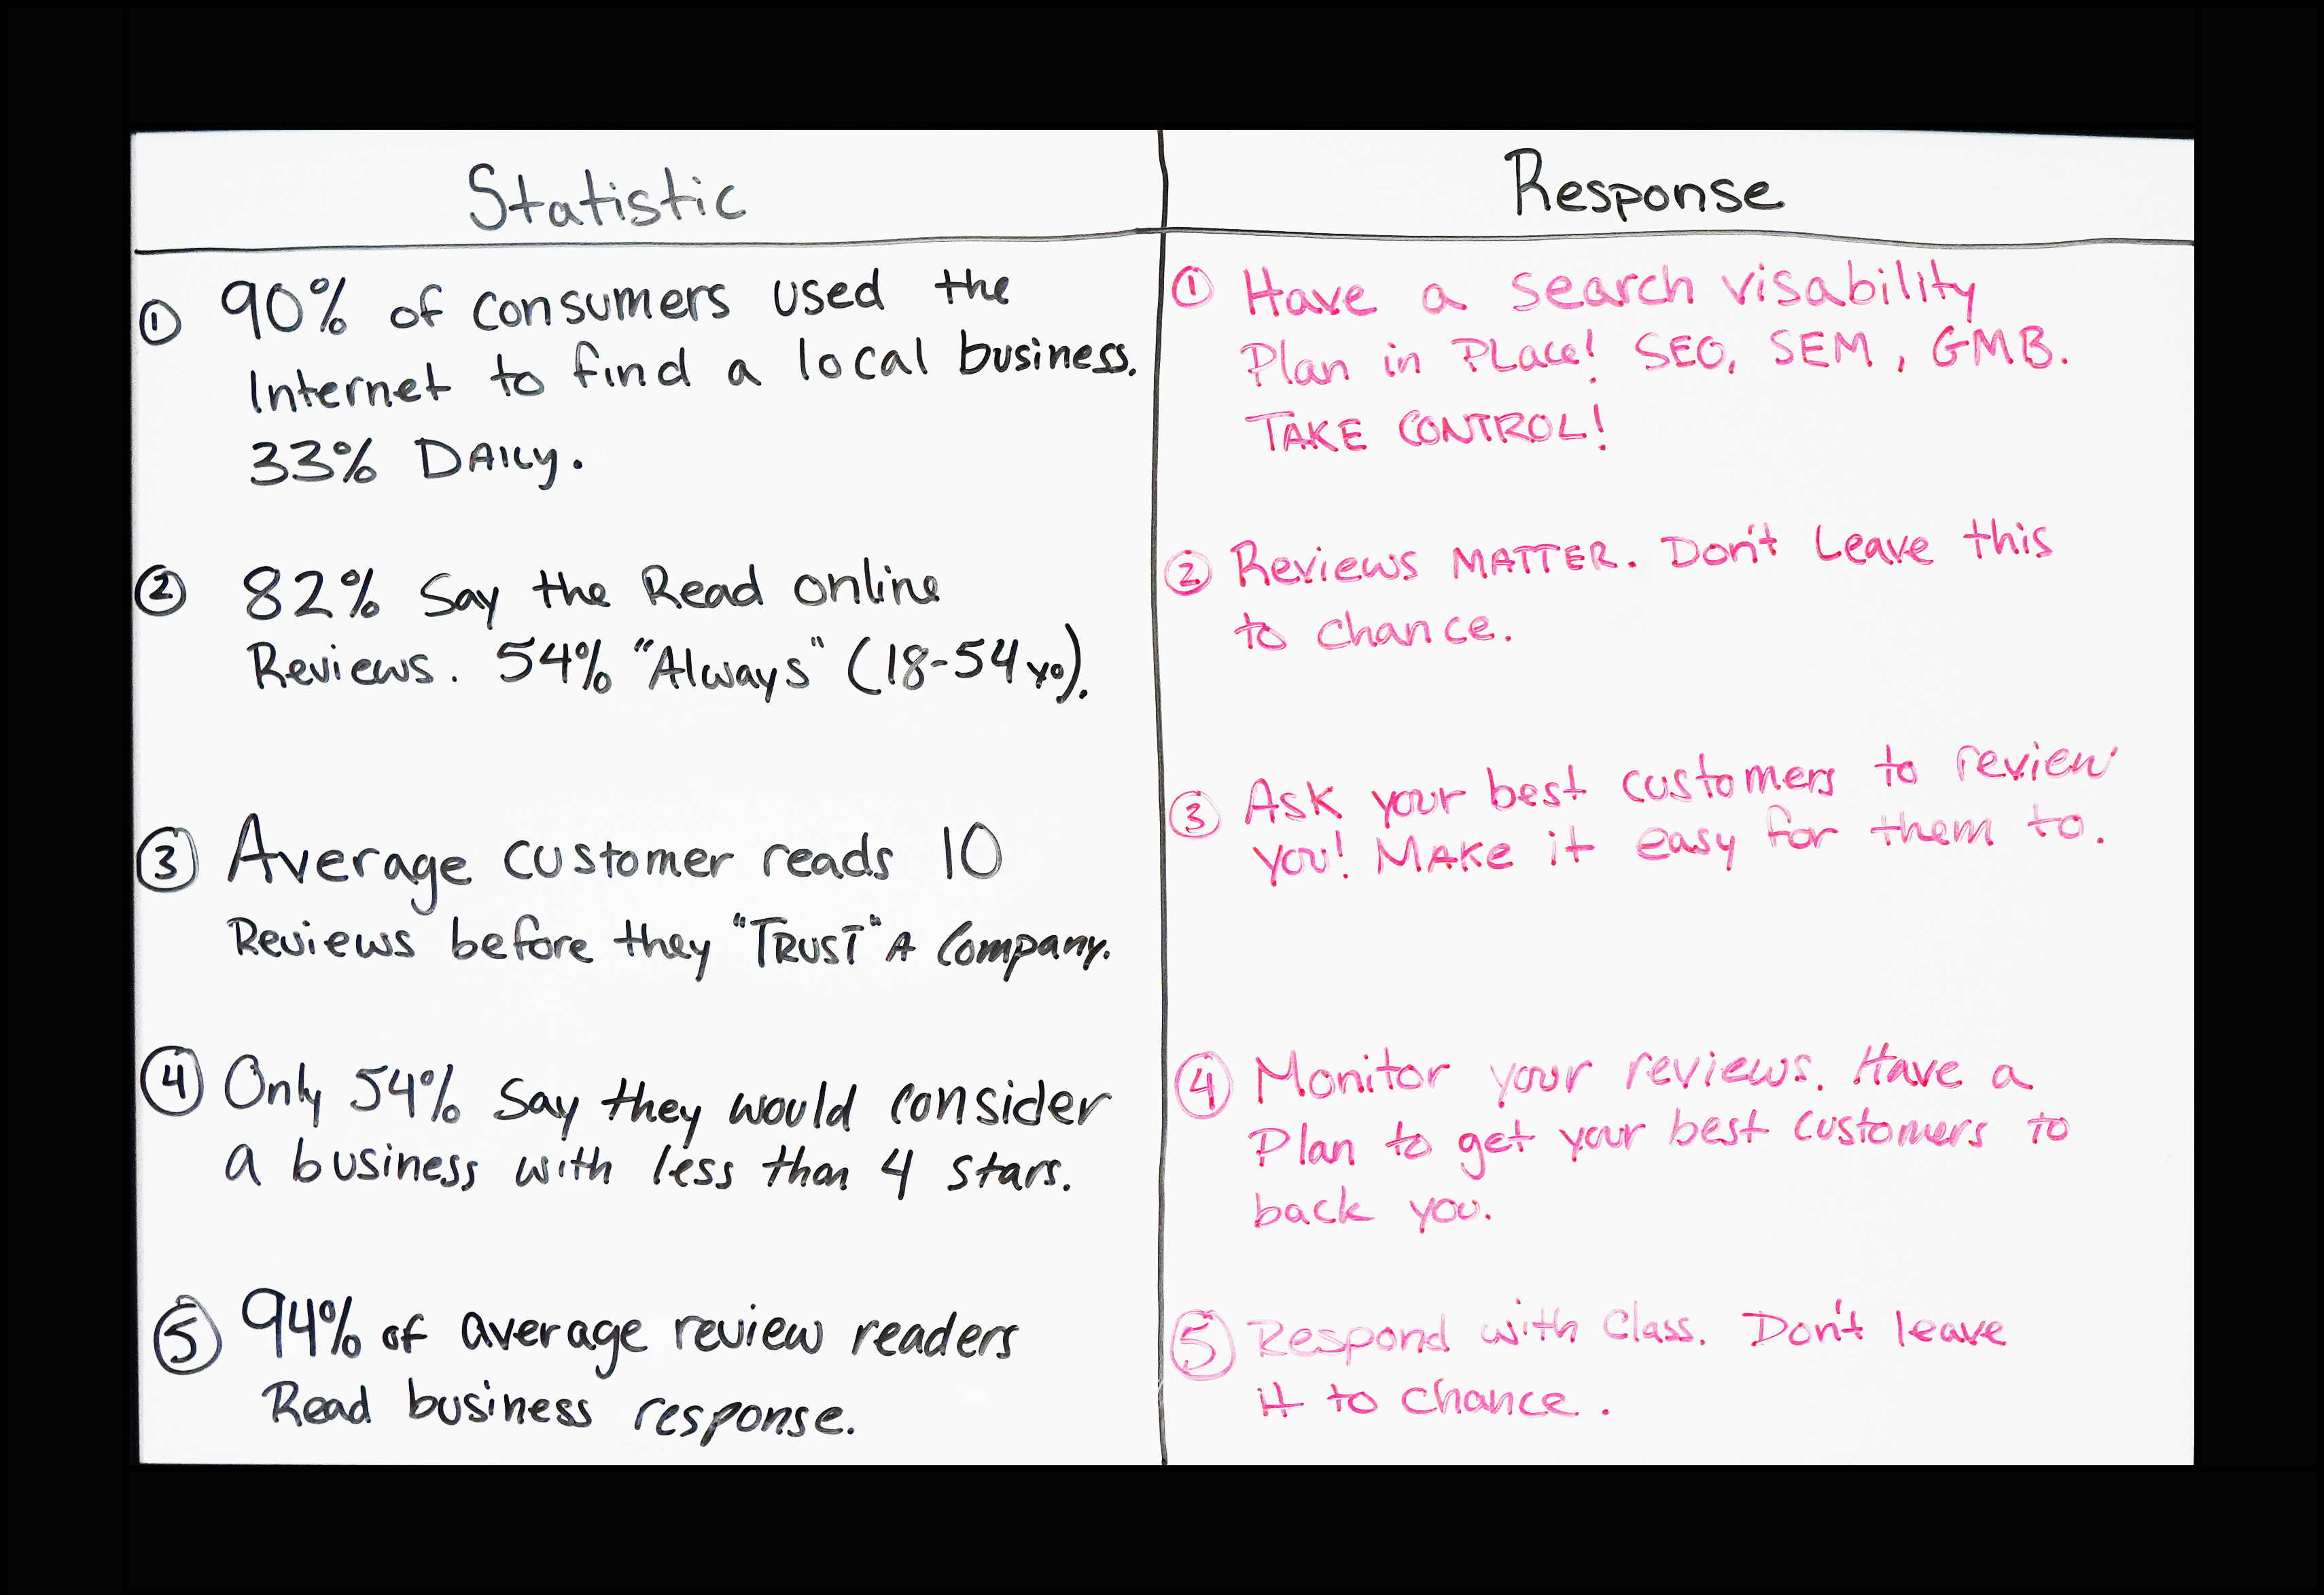 Statistic
① 90% of consumers used the
Internet to find a local business.
33% DAILY.
② 82% Say the Read online
Reviews. 54% "Always" (18-54 yo).
③ Average customer reads 10
Reviews before they "TRUST" A Company.
④ Only 54% Say they would consider
a business with less than 4 stars.
⑤ 94% of average review readers
Read business response.
Response
① Have a search visability
Plan in PLace! SEO, SEM, GMB.
TAKE CONTROL!
② Reviews MATTER. Don't Leave this
to chance.
③ Ask your best customers to review
you! MAKe it easy for them to.
④ Monitor your reviews. Have a
Plan to get your best customers to
back you.
⑤ Respond with Class. Don't leave
it to chance.